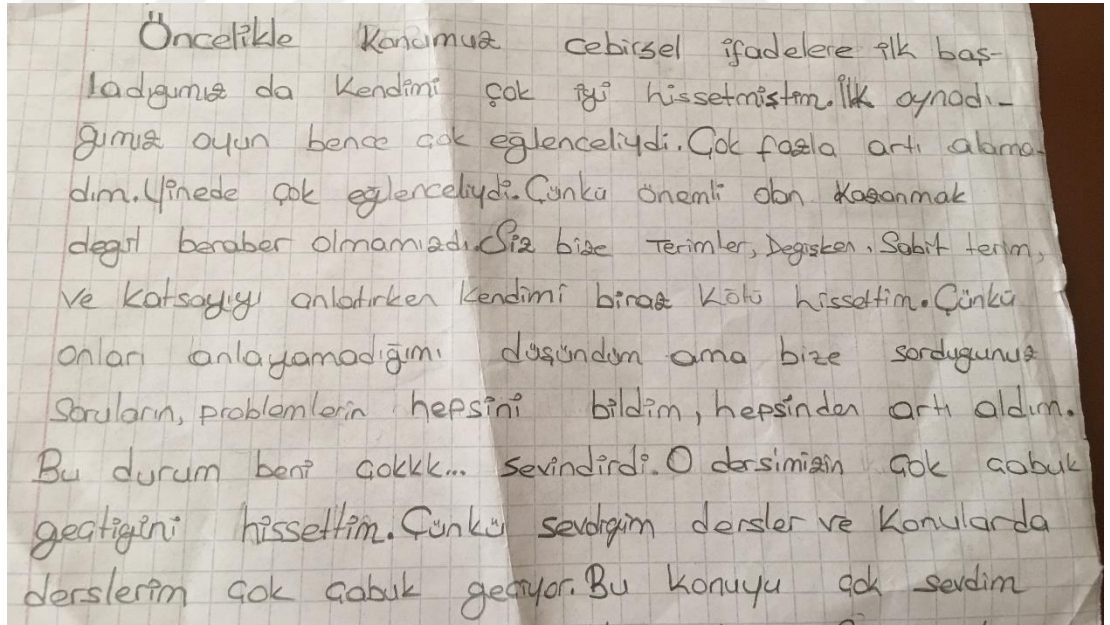 Öncelikle Konumuz cebirsel ifadelere ilk baş-
ladıgımız da Kendimi çok iyi hissetmiştim. İlk oynadı-
ğımız oyun bence çok eğlenceliydi. Çok fazla artı alama-
dım. Yinede çok eğlenceliydi. Çünkü önemli olan Kazanmak
degil beraber olmamızdı. Siz bize Terimler, Degişken, Sabit terim,
Ve Katsayıyı anlatırken Kendimi biraz Kötü hissettim. Çünkü
onları anlayamadığımı düşündüm ama bize sordugunuz
Soruların, problemlerin hepsini bildim, hepsinden artı aldım.
Bu durum beni çokkk... Sevindirdi. O dersimizin çok çabuk
geçtigini hissettim. Çünkü sevdigim dersler ve Konularda
derslerim çok çabuk geçiyor. Bu konuyu çok sevdim